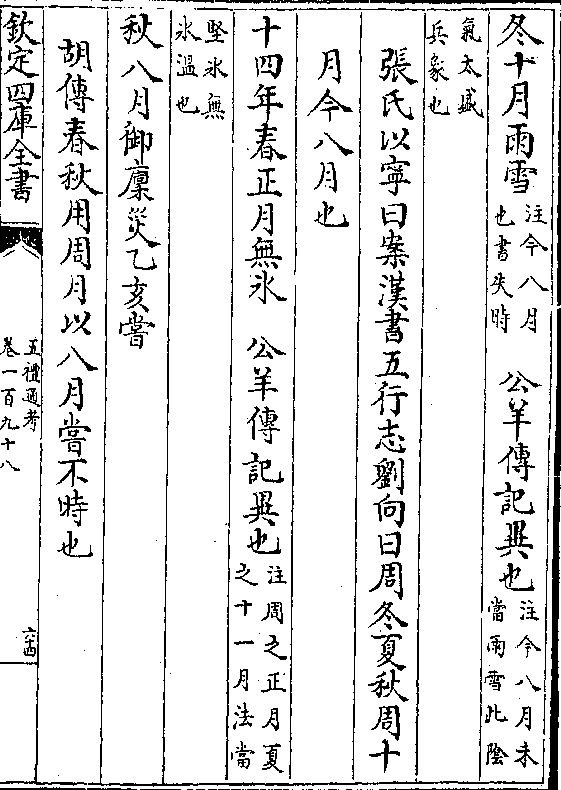 冬十月雨雪 注今八月也書失時 公羊傳記異也 注今八月未當雨雪此陰
氣太盛兵象也
張氏以寧曰案漢書五行志劉向曰周冬夏秋周十
月今八月也
十四年春正月無氷 公羊傳記異也 注周之正月夏之十一月法當
堅氷無氷溫也
秋八月御廩災乙亥嘗
胡傳春秋用周月以八月嘗不時也
欽定四庫全書
五禮通考
卷一百九十八
六四